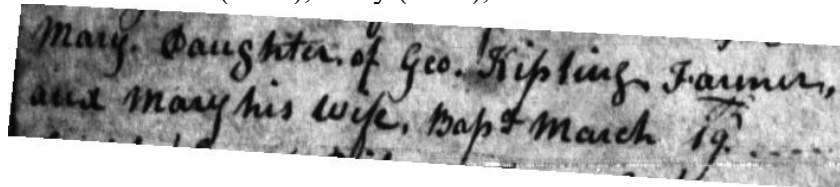 Mary. Daughter, of Geo. Kipling Farmer,
and Mary his wife, Bapt March 19